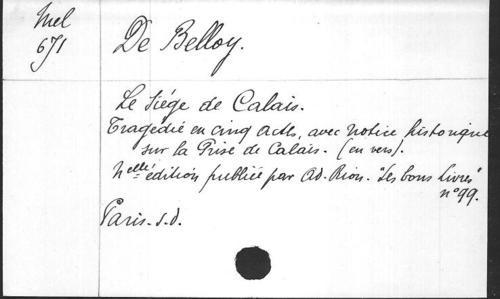 Mel
671
De Belloy.
Le Siége de Calais.
Tragédie en cinq actes, avec notice historique
sur la Prise de Calais. (en vers).
Nelle édition publiée par Ad. Rion. "Les bons livres"
n° 99.
Paris. s.d.